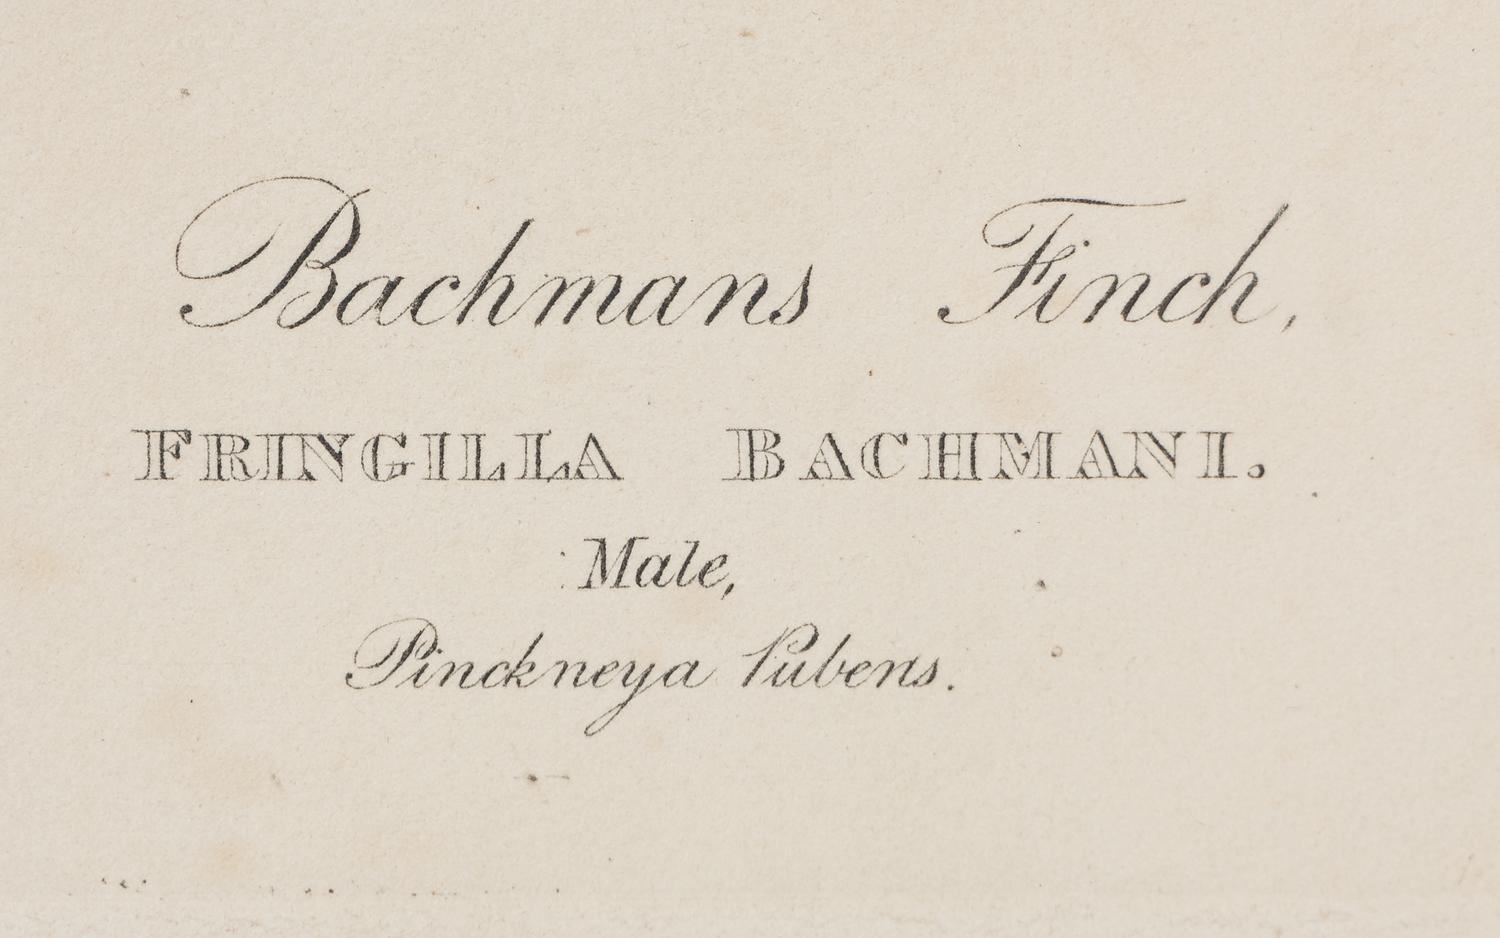 Bachmans Finch,
FRINGILLA BACHMANI.
Male,
Pinckneya Pubens.